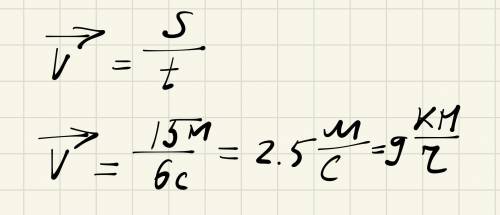 V⃗ = S/t
V⃗ = 15м/6с = 2.5 м/с = 9 км/ч